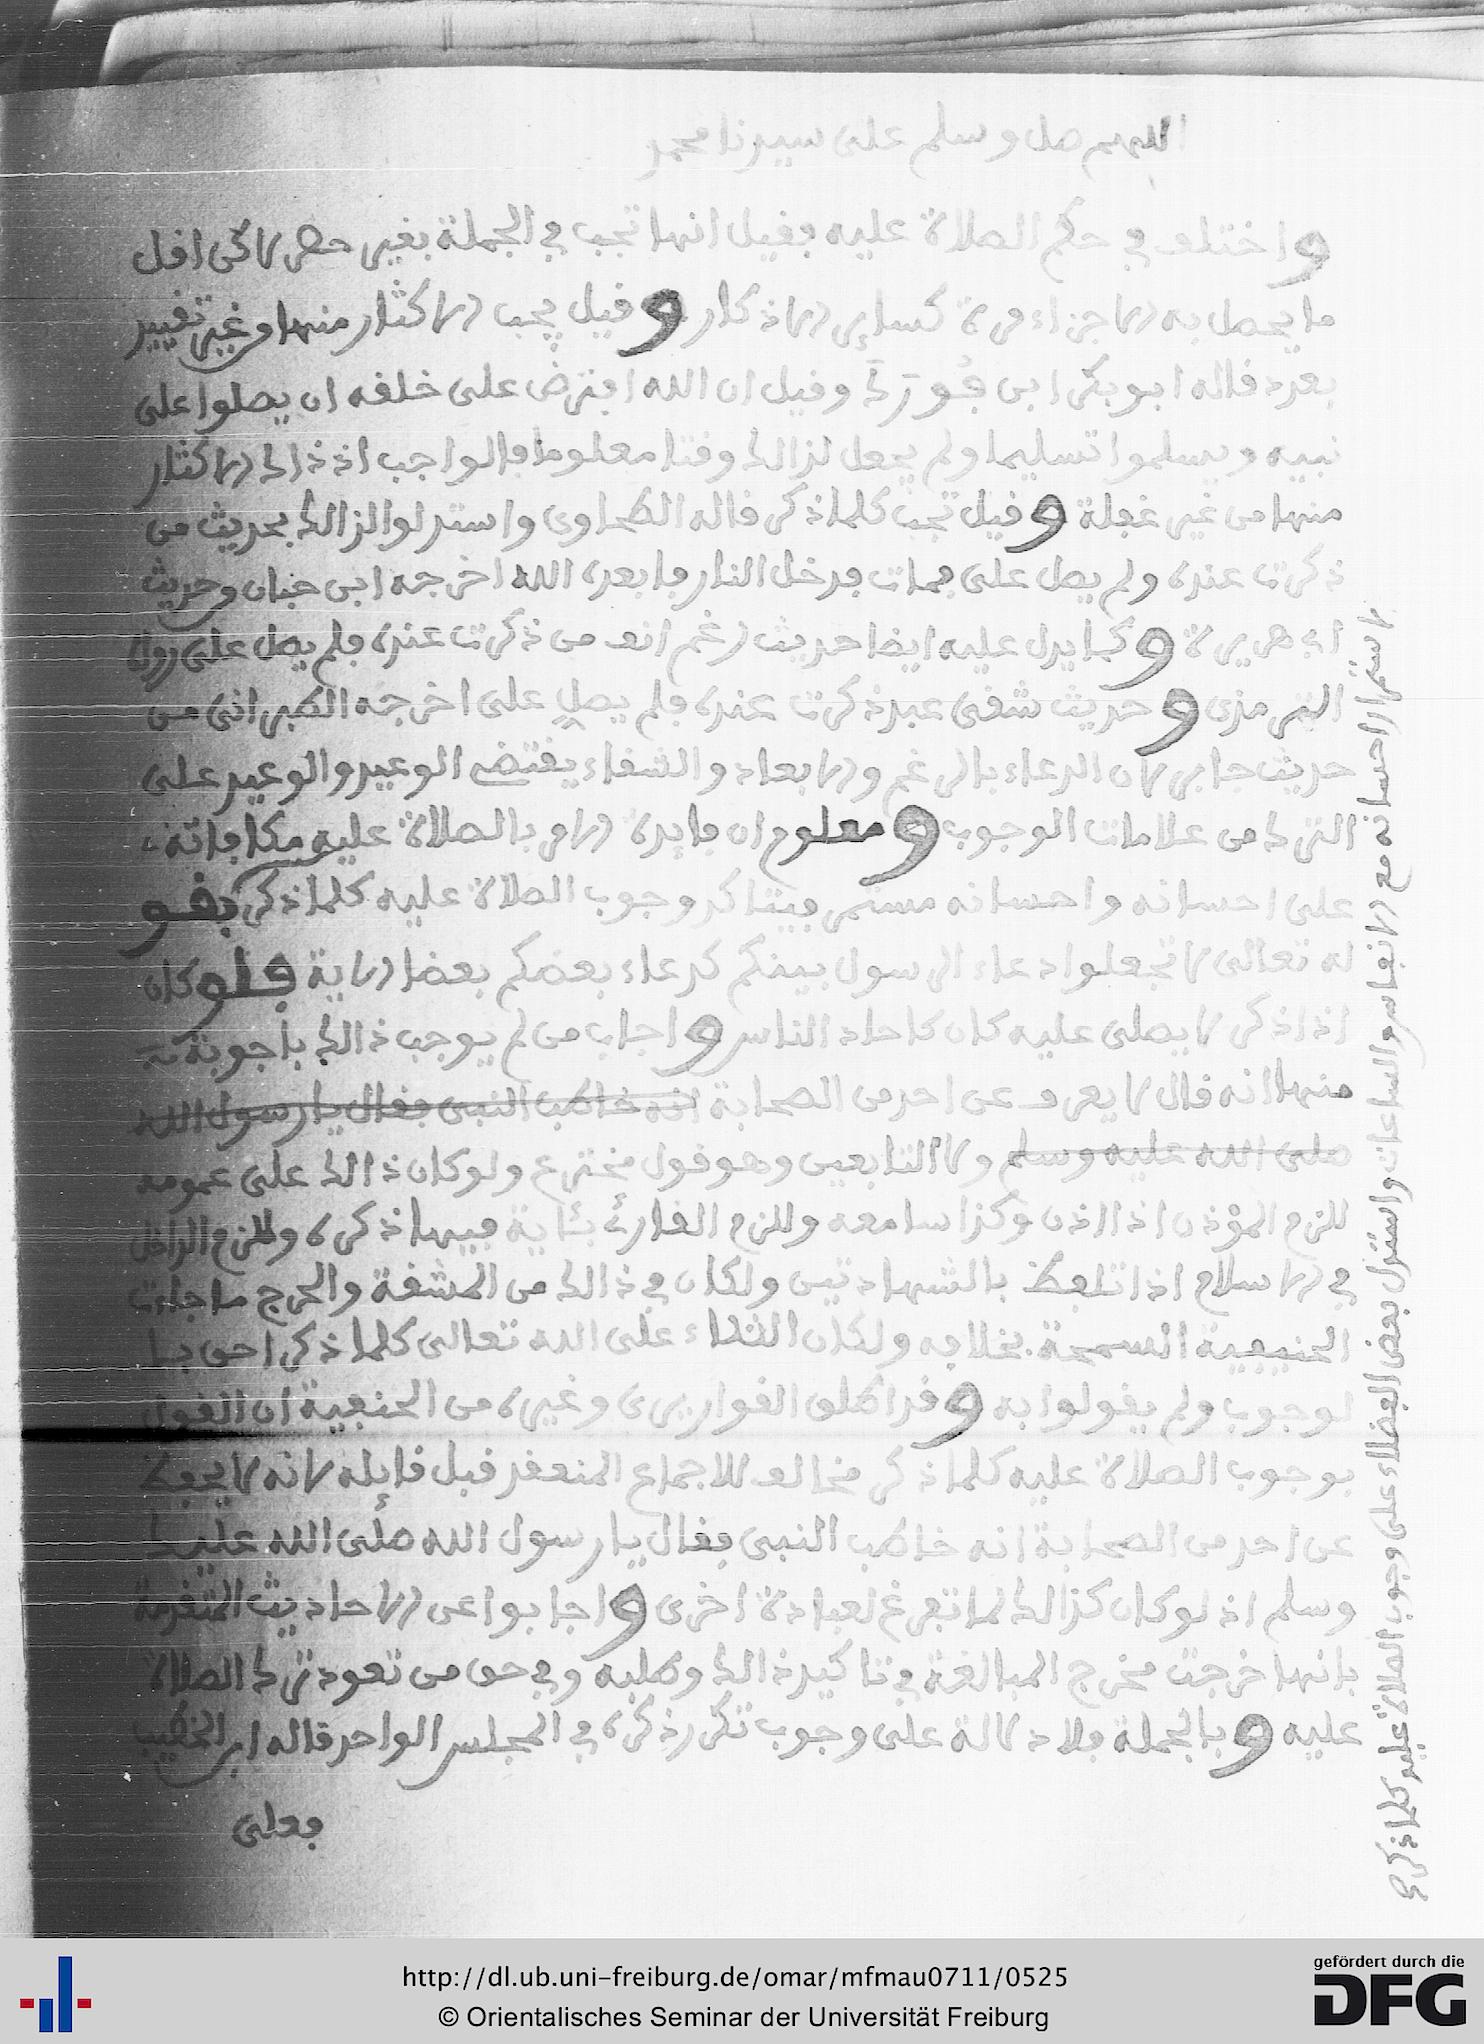 اللهم صل وسلم على سيدنا محمد
واختلف في حكم الصلاة عليه فقيل انها تجب في الجملة بغير حصر لاكن اقل
ما يحصل به الاجزاء مرة كساير الاذكار وقيل يجب الاكثار منها من غير تقييد
بعدد قاله ابو بكر ابن فُورَك وقيل ان الله افترض على خلقه ان يصلوا على
نبيه ويسلموا تسليما ولم يجعل لذالك وقتا معلوما فالواجب اذ ذاك الاكثار
منها من غير غفلة وقيل تجب كلما ذكر قاله الطحاوي واستدلوا لذالك بحديث من
ذكرت عنده ولم يصل علي فمات فدخل النار فابعده الله اخرجه ابن حبان وحديث
ابي هريرة وكما يدل عليه ايضا حديث رغم انف من ذكرت عنده فلم يصل علي رواه
الترمذي وحديث شقي عبد ذكرت عنده فلم يصل علي اخرجه الطبراني من
حديث جابر لان الدعاء بالرغم والابعاد والشقاء يقتضي الوعيد والوعيد على
الترك من علامات الوجوب ومعلوم ان فايدة الامر بالصلاة عليه مكافاته
على احسانه واحسانه مستمر فيتاكد وجوب الصلاة عليه كلما ذكر بقو
له تعالى لا تجعلوا دعاء الرسول بينكم كدعاء بعضكم بعضا الاية فلو كان
اذا ذكر لا يصلى عليه كان كاحاد الناس واجاب من لم يوجب ذالك باجوبة
منها انه قال لا يعرف عن احد من الصحابة انه خاطب النبي فقال يا رسول الله
صلى الله عليه وسلم ولا التابعين وهو قول مخترع ولو كان ذالك على عمومه
للزم المؤذن اذا اذن وكذا سامعه وللزم القارئ بئاية فيها ذكره وللزم الداخل
في الاسلام اذا تلفظ بالشهادتين ولكان في ذالك من المشقة والحرج ما جاءت
الحنيفية السمحة بخلافه ولكان الثناء على الله تعالى كلما ذكر احق با
لوجوب ولم يقولوا به وقد اطلق القواريري وغيره من الحنفية ان القول
بوجوب الصلاة عليه كلما ذكر مخالف للاجماع المنعقد قبل قايله لانه لا يحفظ
عن احد من الصحابة انه خاطب النبي فقال يا رسول الله صلى الله عليك
وسلم اذ لو كان كذالك لما تفرغ لعبادة اخرى واجابوا عن الاحاديث المتقدمة
بانها خرجت مخرج المبالغة في تاكيد ذالك وطلبه وفي حق من تعود ترك الصلاة
عليه وبالجملة فلا دلالة على وجوب تكرر ذكره في المجلس الواحد قاله ابن الخطيب
فعلى
باستمرار احسانه مع الانفاس والساعات واستدل بعض الفضلاء على وجوب الصلاة عليه كلما ذكر
http://dl.ub.uni-freiburg.de/omar/mfmau0711/0525
© Orientalisches Seminar der Universität Freiburg
gefördert durch die
DFG